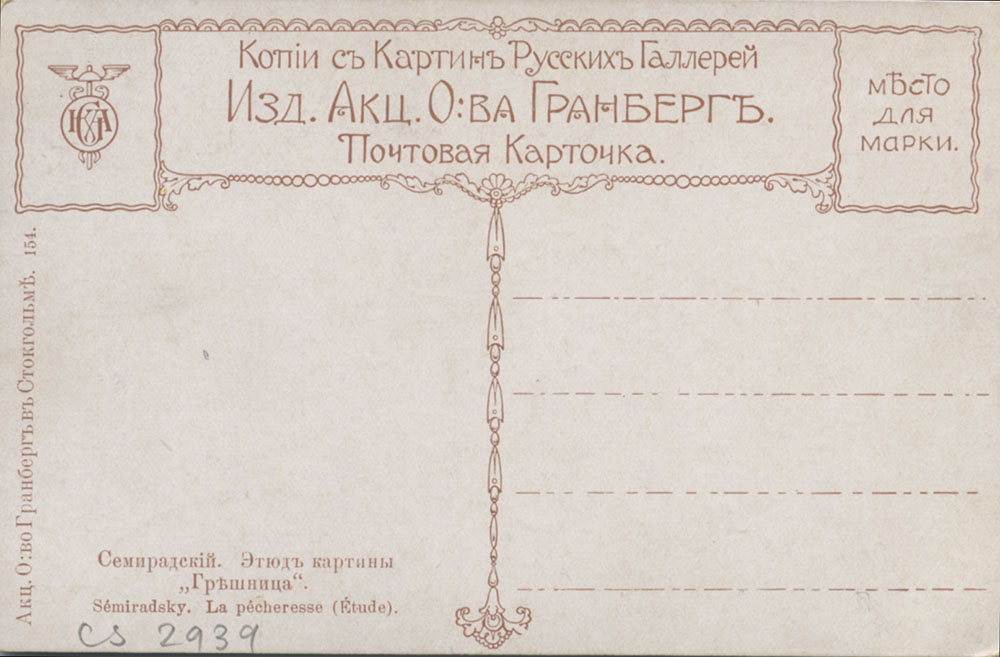 Копіи съ Картинъ Русскихъ Галлерей
Изд. Акц. О:ва Гранбергъ.
Почтовая Карточка.
мѣсто
для
марки.
Акц. О:во Гранбергъ въ Стокгольмѣ. 154.
Семирадскій. Этюдъ картины
„Грѣшница“.
Sémiradsky. La pécheresse (Étude).
CS 2939